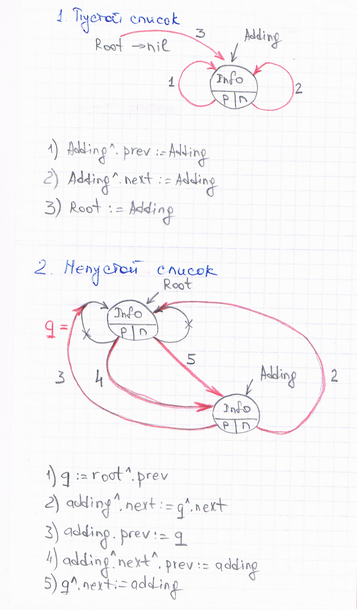 1. Пустой список
3
Root → nil
Adding
Info
p n
1
2
1) Adding^.prev := Adding
2) Adding^.next := Adding
3) Root := Adding
2. Непустой список
Root
Info
q =
p n
5
3
4
Adding
2
Info
p n
1) q := root^.prev
2) adding^.next := q^.next
3) adding.prev := q
4) adding^next^.prev := adding
5) q^.next := adding